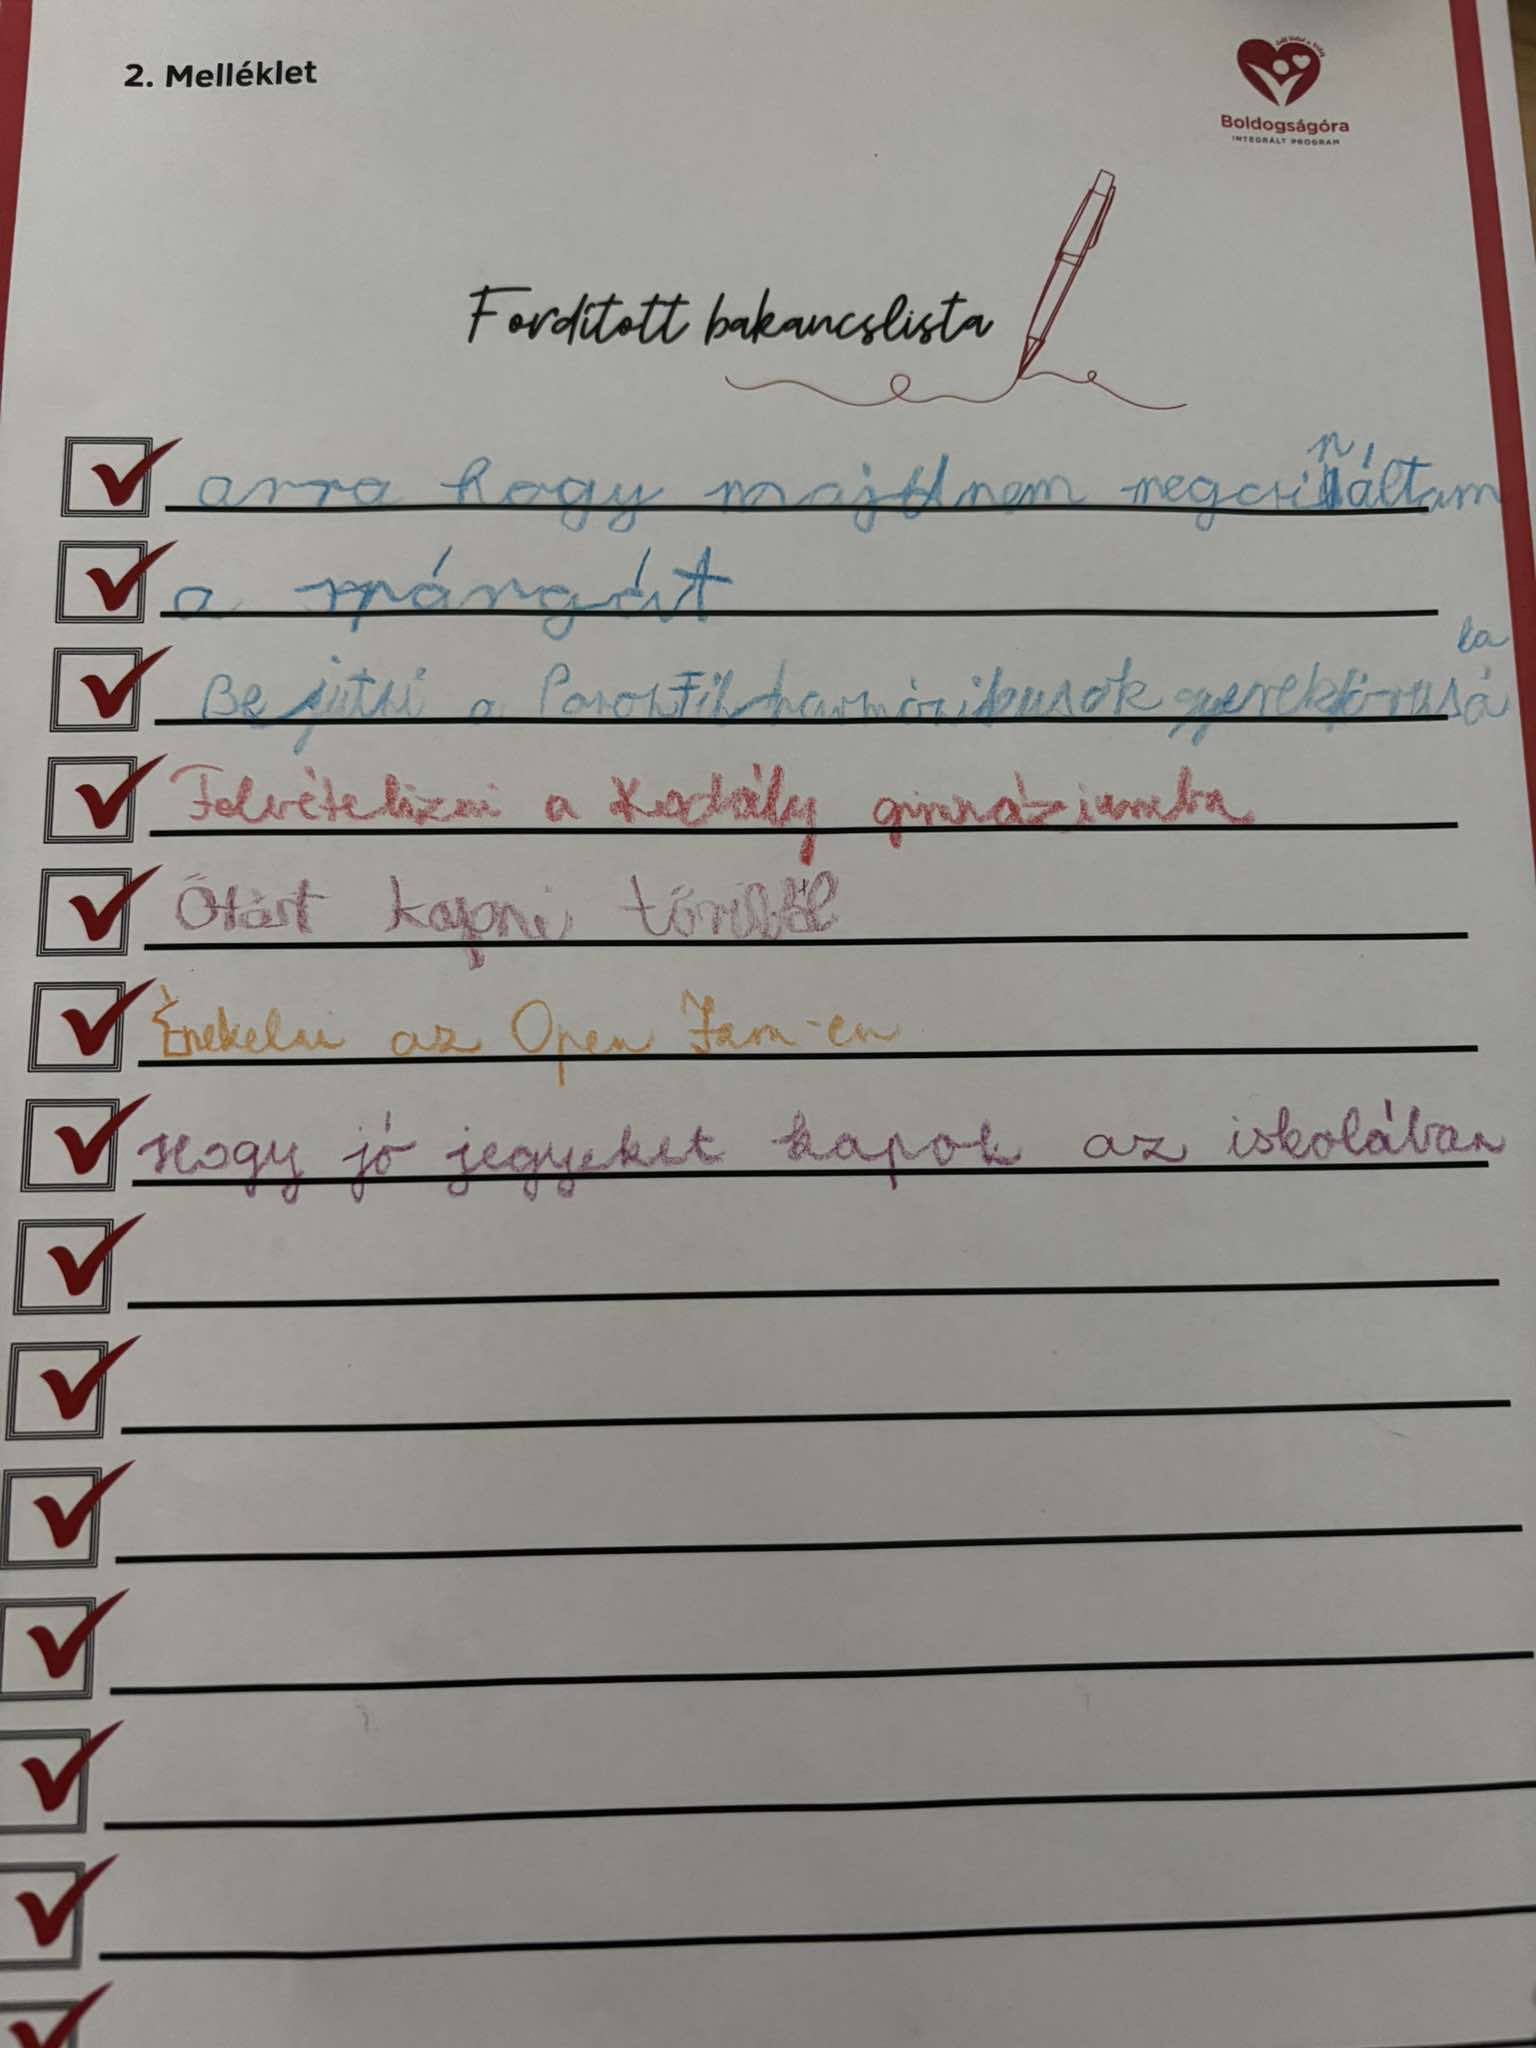 2. Melléklet
Boldogságóra
INTEGRÁLT PROGRAM
Fordított bakancslista
arra hogy majdnem megcsináltam
a spárgát
Be jutni a gyerekkórusá
ba
Felvételizni a Kodály gimnáziumba
Ötöst kapni töriből
Énekelni az Open Jam-en
Hogy jó jegyeket kapok az iskolában